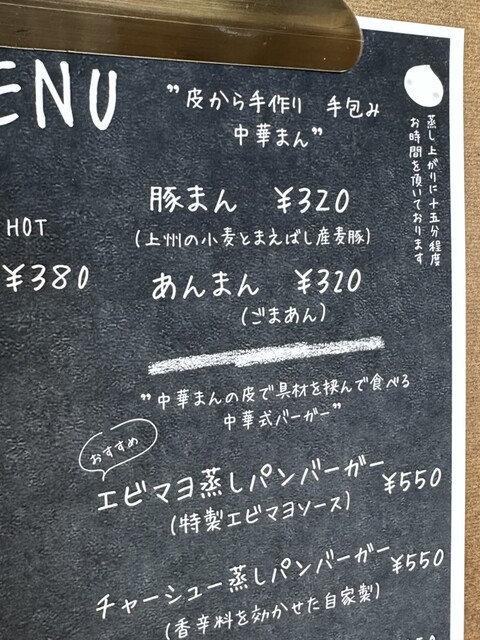 ENU
HOT
¥380
"皮から手作り 手包み
中華まん"
豚まん ¥320
(上州の小麦とまえばし産麦豚)
あんまん ¥320
(ごまあん)
蒸し上がりに十五分程度
お時間を頂いております
"中華まんの皮で具材を挟んで食べる
中華式バーガー"
おすすめ
エビマヨ蒸しパンバーガー ¥550
(特製エビマヨソース)
チャーシュー蒸しパンバーガー ¥550
(香辛料を効かせた自家製)